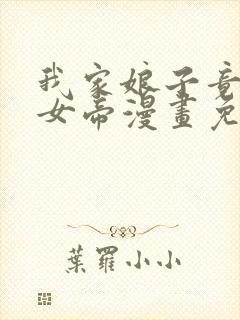 我家娘子竟
女帝漫畫免
葉羅小小